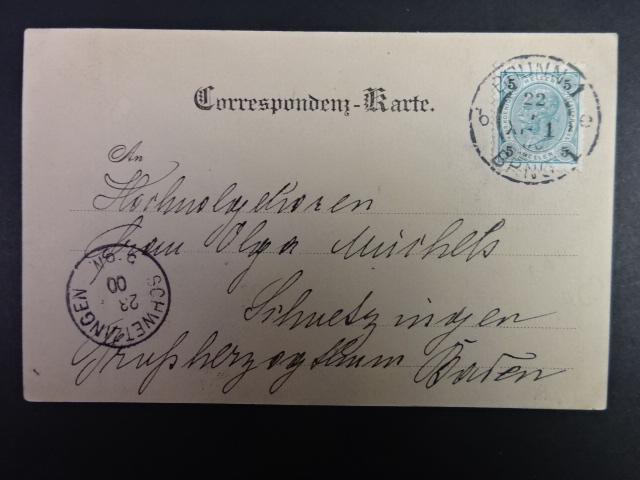 Correspondenz-Karte.
BRÜNN 1
22
1
BRNO 1
6 e
5 5
5 5
An
Hochwolgeboren
Frau Olga Michels
Schwetzingen
Großherzogthum Baden
SCHWETZINGEN
23
00